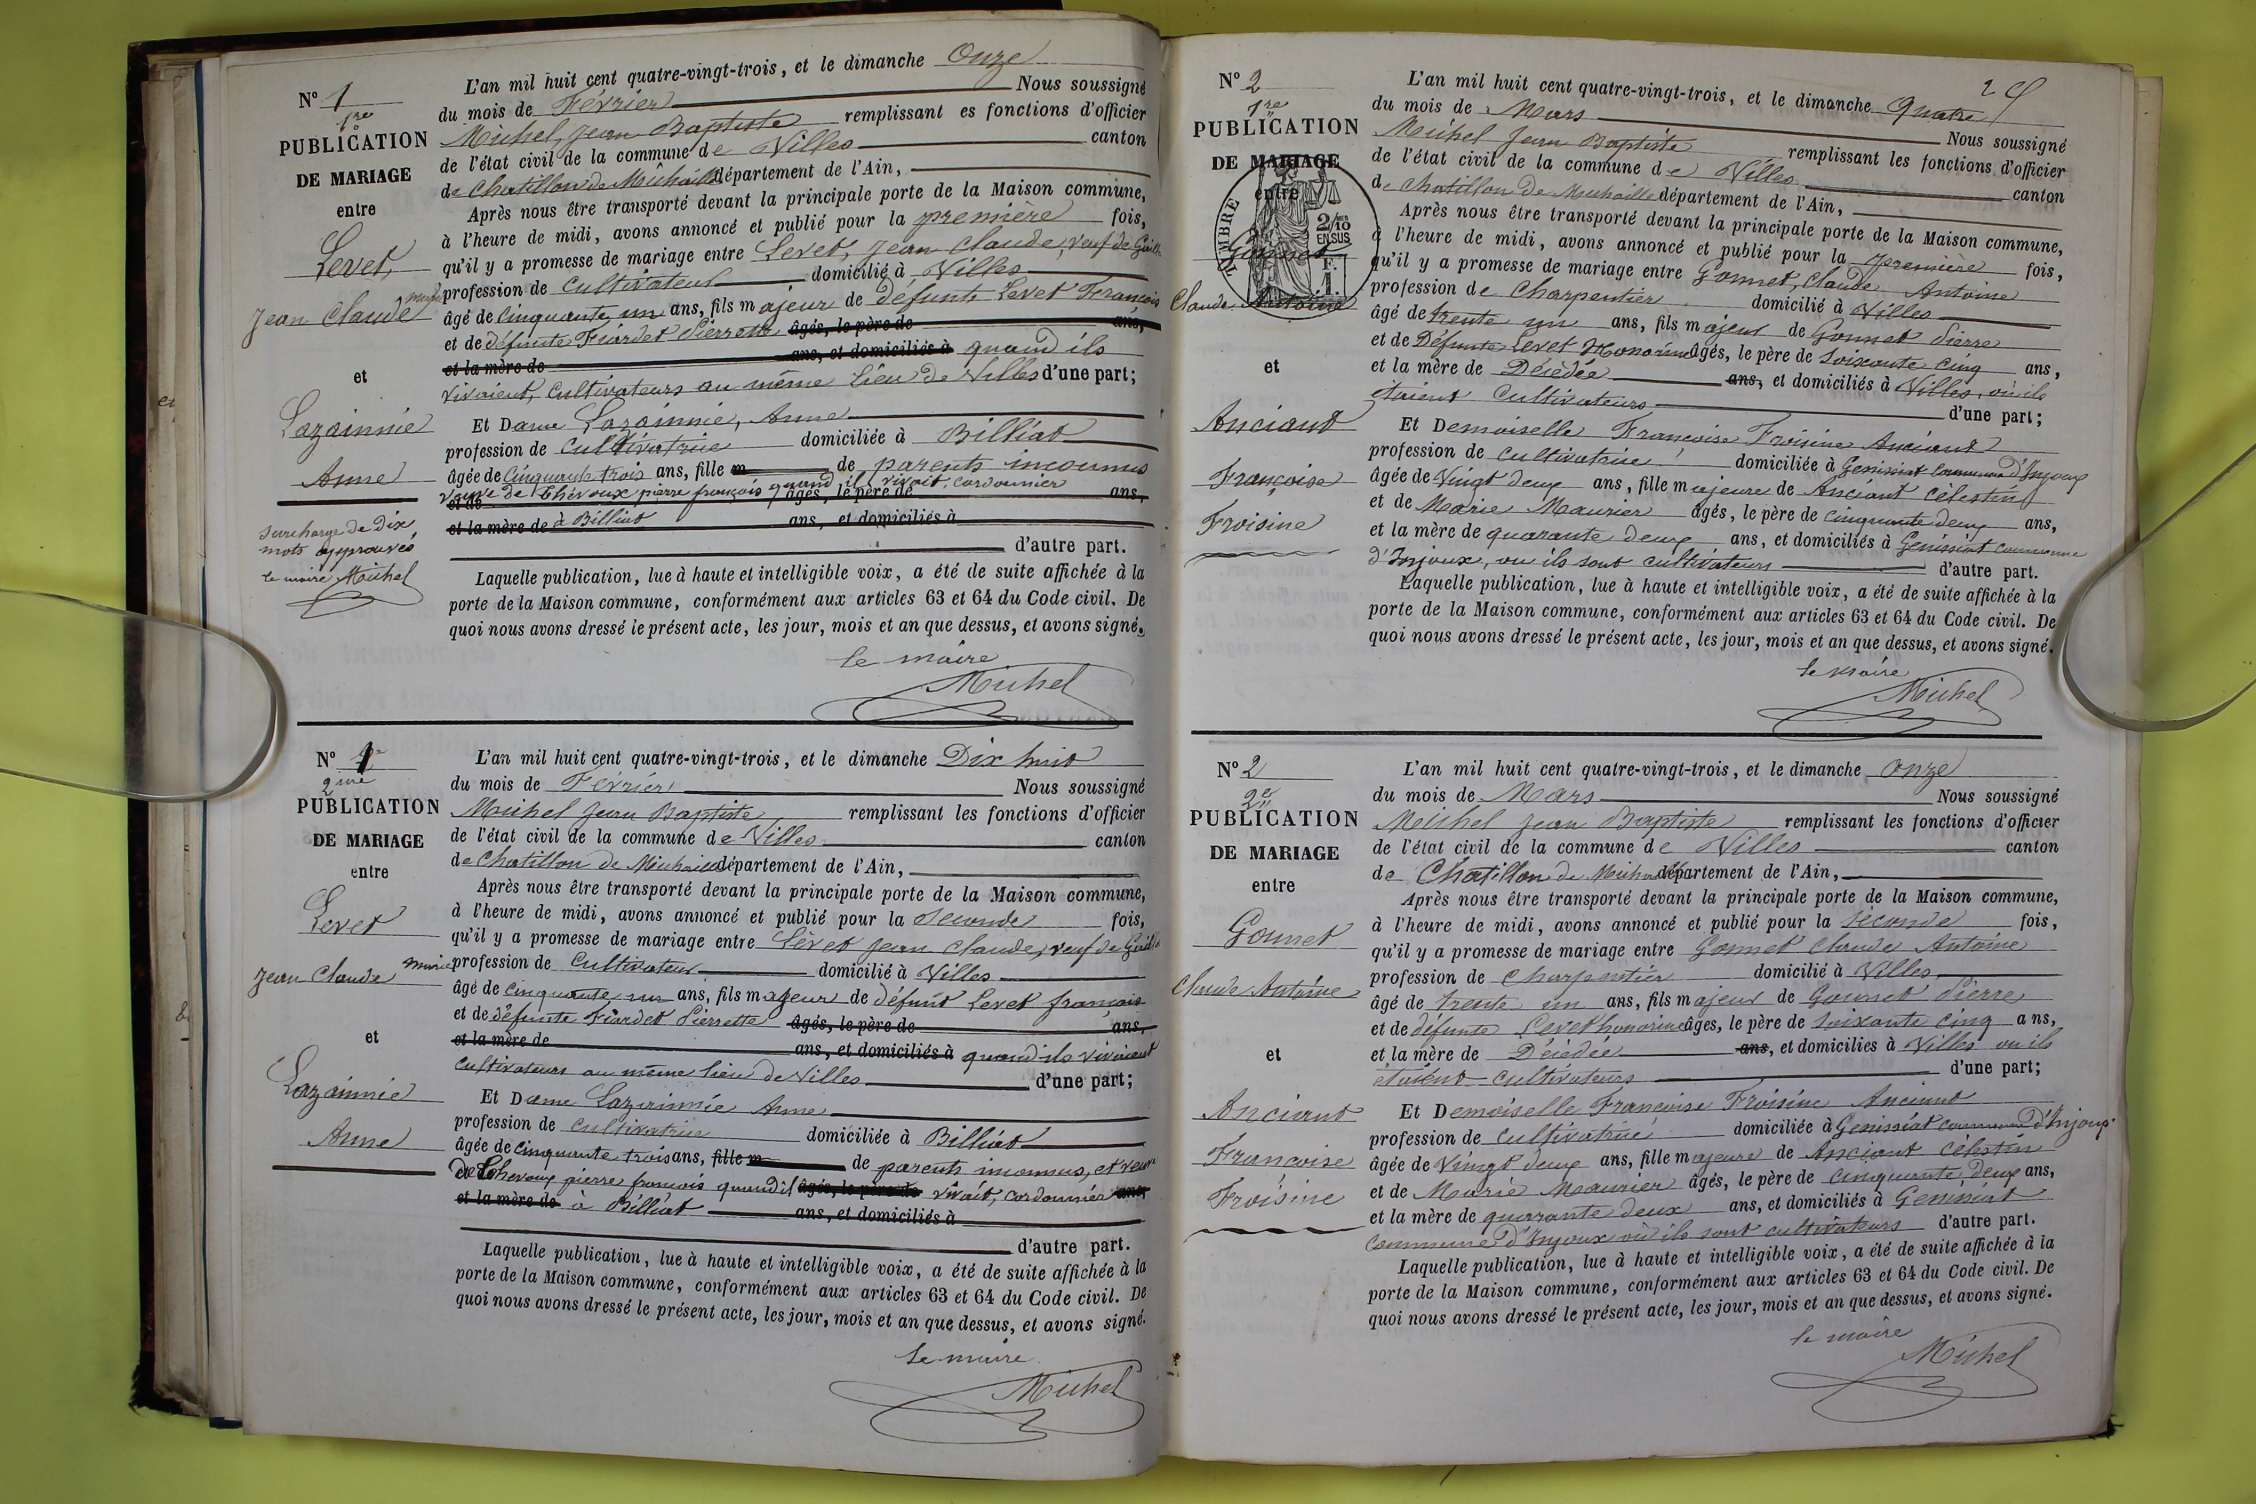 N° 1
1re
PUBLICATION
DE MARIAGE
entre
Levet,
Jean Claude
et
Lazainnie
Anne
surcharge de Dix
mots approuvés
le maire Michel
L'an mil huit cent quatre-vingt-trois, et le dimanche Onze
du mois de Février Nous soussigné
Michel, Jean Baptiste remplissant es fonctions d'officier
de l'état civil de la commune de Villes canton
de Chatillon de Michaille département de l'Ain,
Après nous être transporté devant la principale porte de la Maison commune,
à l'heure de midi, avons annoncé et publié pour la première fois,
qu'il y a promesse de mariage entre Levet, Jean Claude, veuf de
profession de Cultivateur domicilié à Villes
âgé de Cinquante un ans, fils majeur de défunt Levet François
et de défunte Fiardet Pierrette âgés, le père de ans,
et la mère de ans, et domiciliés à quand ils
vivaient, cultivateurs au même lieu de Villes d'une part;
Et Dame Lazainnie, Anne
profession de Cultivatrice domiciliée à Billiat
âgée de Cinquante trois ans, fille m de parents inconnus
veuve de Chévoux pierre françois quand il vivait, cordonnier
et de âgés, le père de ans,
et la mère de à Billiat ans, et domiciliés à
d'autre part.
Laquelle publication, lue à haute et intelligible voix, a été de suite affichée à la
porte de la Maison commune, conformément aux articles 63 et 64 du Code civil. De
quoi nous avons dressé le présent acte, les jour, mois et an que dessus, et avons signé.
le maire
Michel
N° 1
2me
PUBLICATION
DE MARIAGE
entre
Levet
Jean Claude
et
Lazainnie
Anne
L'an mil huit cent quatre-vingt-trois, et le dimanche Dix huit
du mois de Février Nous soussigné
Michel Jean Baptiste remplissant les fonctions d'officier
de l'état civil de la commune de Villes canton
de Chatillon de Michaille département de l'Ain,
Après nous être transporté devant la principale porte de la Maison commune,
à l'heure de midi, avons annoncé et publié pour la seconde fois,
qu'il y a promesse de mariage entre Levet Jean Claude, veuf de
profession de Cultivateur domicilié à Villes
âgé de cinquante un ans, fils majeur de défunt Levet françois
et de défunte Fiardet Pierrette âgés, le père de ans,
et la mère de ans, et domiciliés à quand ils vivaient
cultivateurs au même lieu de Villes d'une part;
Et Dame Lazainnie Anne
profession de Cultivatrice domiciliée à Billiat
âgée de cinquante trois ans, fille m de parents inconnus, et veuve
de Chevoux pierre françois quand il âgés, le père de vivait, cordonnier ans,
et la mère de à Billiat ans, et domiciliés à
d'autre part.
Laquelle publication, lue à haute et intelligible voix, a été de suite affichée à la
porte de la Maison commune, conformément aux articles 63 et 64 du Code civil. De
quoi nous avons dressé le présent acte, les jour, mois et an que dessus, et avons signé.
le maire
Michel
N° 2
1re
PUBLICATION
DE MARIAGE
entre
TIMBRE
2/10
EN SUS
F.
1.
Gonnet
Claude Antoine
et
Anciant
Françoise
Froisine
L'an mil huit cent quatre-vingt-trois, et le dimanche Quatre
du mois de Mars Nous soussigné
Michel Jean Baptiste remplissant les fonctions d'officier
de l'état civil de la commune de Villes canton
de Chatillon de Michaille département de l'Ain,
Après nous être transporté devant la principale porte de la Maison commune,
à l'heure de midi, avons annoncé et publié pour la première fois,
qu'il y a promesse de mariage entre Gonnet, Claude Antoine
profession de Charpentier domicilié à Villes
âgé de trente un ans, fils majeur de Gonnet Pierre
et de Défunte Levet Honorine âgés, le père de Soixante cinq ans,
et la mère de Décédée ans, et domiciliés à Villes, où ils
étaient Cultivateurs d'une part;
Et Demoiselle Françoise Froisine Anciant
profession de cultivatrice domiciliée à Genissiat commune d'Injoux
âgée de Vingt deux ans, fille majeure de Anciant Célestin
et de Marie Maurier âgés, le père de cinquante deux ans,
et la mère de quarante deux ans, et domiciliés à Genissiat commune
d'Injoux, ou ils sont cultivateurs d'autre part.
Laquelle publication, lue à haute et intelligible voix, a été de suite affichée à la
porte de la Maison commune, conformément aux articles 63 et 64 du Code civil. De
quoi nous avons dressé le présent acte, les jour, mois et an que dessus, et avons signé.
le maire
Michel
N° 2
2e
PUBLICATION
DE MARIAGE
entre
Gonnet
Claude Antoine
et
Anciant
Françoise
Froisine
L'an mil huit cent quatre-vingt-trois, et le dimanche onze
du mois de Mars Nous soussigné
Michel Jean Baptiste remplissant les fonctions d'officier
de l'état civil de la commune de Villes canton
de Chatillon de Michaille département de l'Ain,
Après nous être transporté devant la principale porte de la Maison commune,
à l'heure de midi, avons annoncé et publié pour la séconde fois,
qu'il y a promesse de mariage entre Gonnet Claude Antoine
profession de charpentier domicilié à Villes
âgé de trente un ans, fils majeur de Gonnet Pierre
et de défunte Levet honorine âgés, le père de soixante cinq ans,
et la mère de Décédée ans, et domiciliés à Villes ou ils
étaient cultivateurs d'une part;
Et Demoiselle Françoise Froisine Anciant
profession de cultivatrice domiciliée à Genissiat commune d'Injoux
âgée de Vingt deux ans, fille majeure de Anciant Célestin
et de Marie Maurier âgés, le père de cinquante deux ans,
et la mère de quarante deux ans, et domiciliés à Genissiat
commune d'Injoux où ils sont cultivateurs d'autre part.
Laquelle publication, lue à haute et intelligible voix, a été de suite affichée à la
porte de la Maison commune, conformément aux articles 63 et 64 du Code civil. De
quoi nous avons dressé le présent acte, les jour, mois et an que dessus, et avons signé.
le maire
Michel